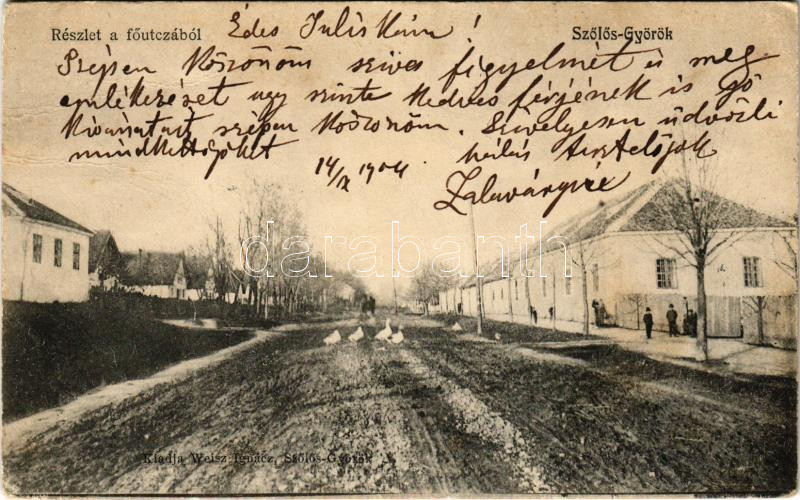 Részlet a főutczából
Szőlős-Györök
Édes Juliskám!
Szépen köszönöm szives figyelmét és meg
emlékezését ugy szinte kedves férjének is jó
kivánatait szépen köszönöm. Szivélyesen üdvözli
mindkettőjöket
14/X 1904 hálás tisztelőjök
darabanth.com
Kiadja Weisz Ignácz, Szőlős-Györök